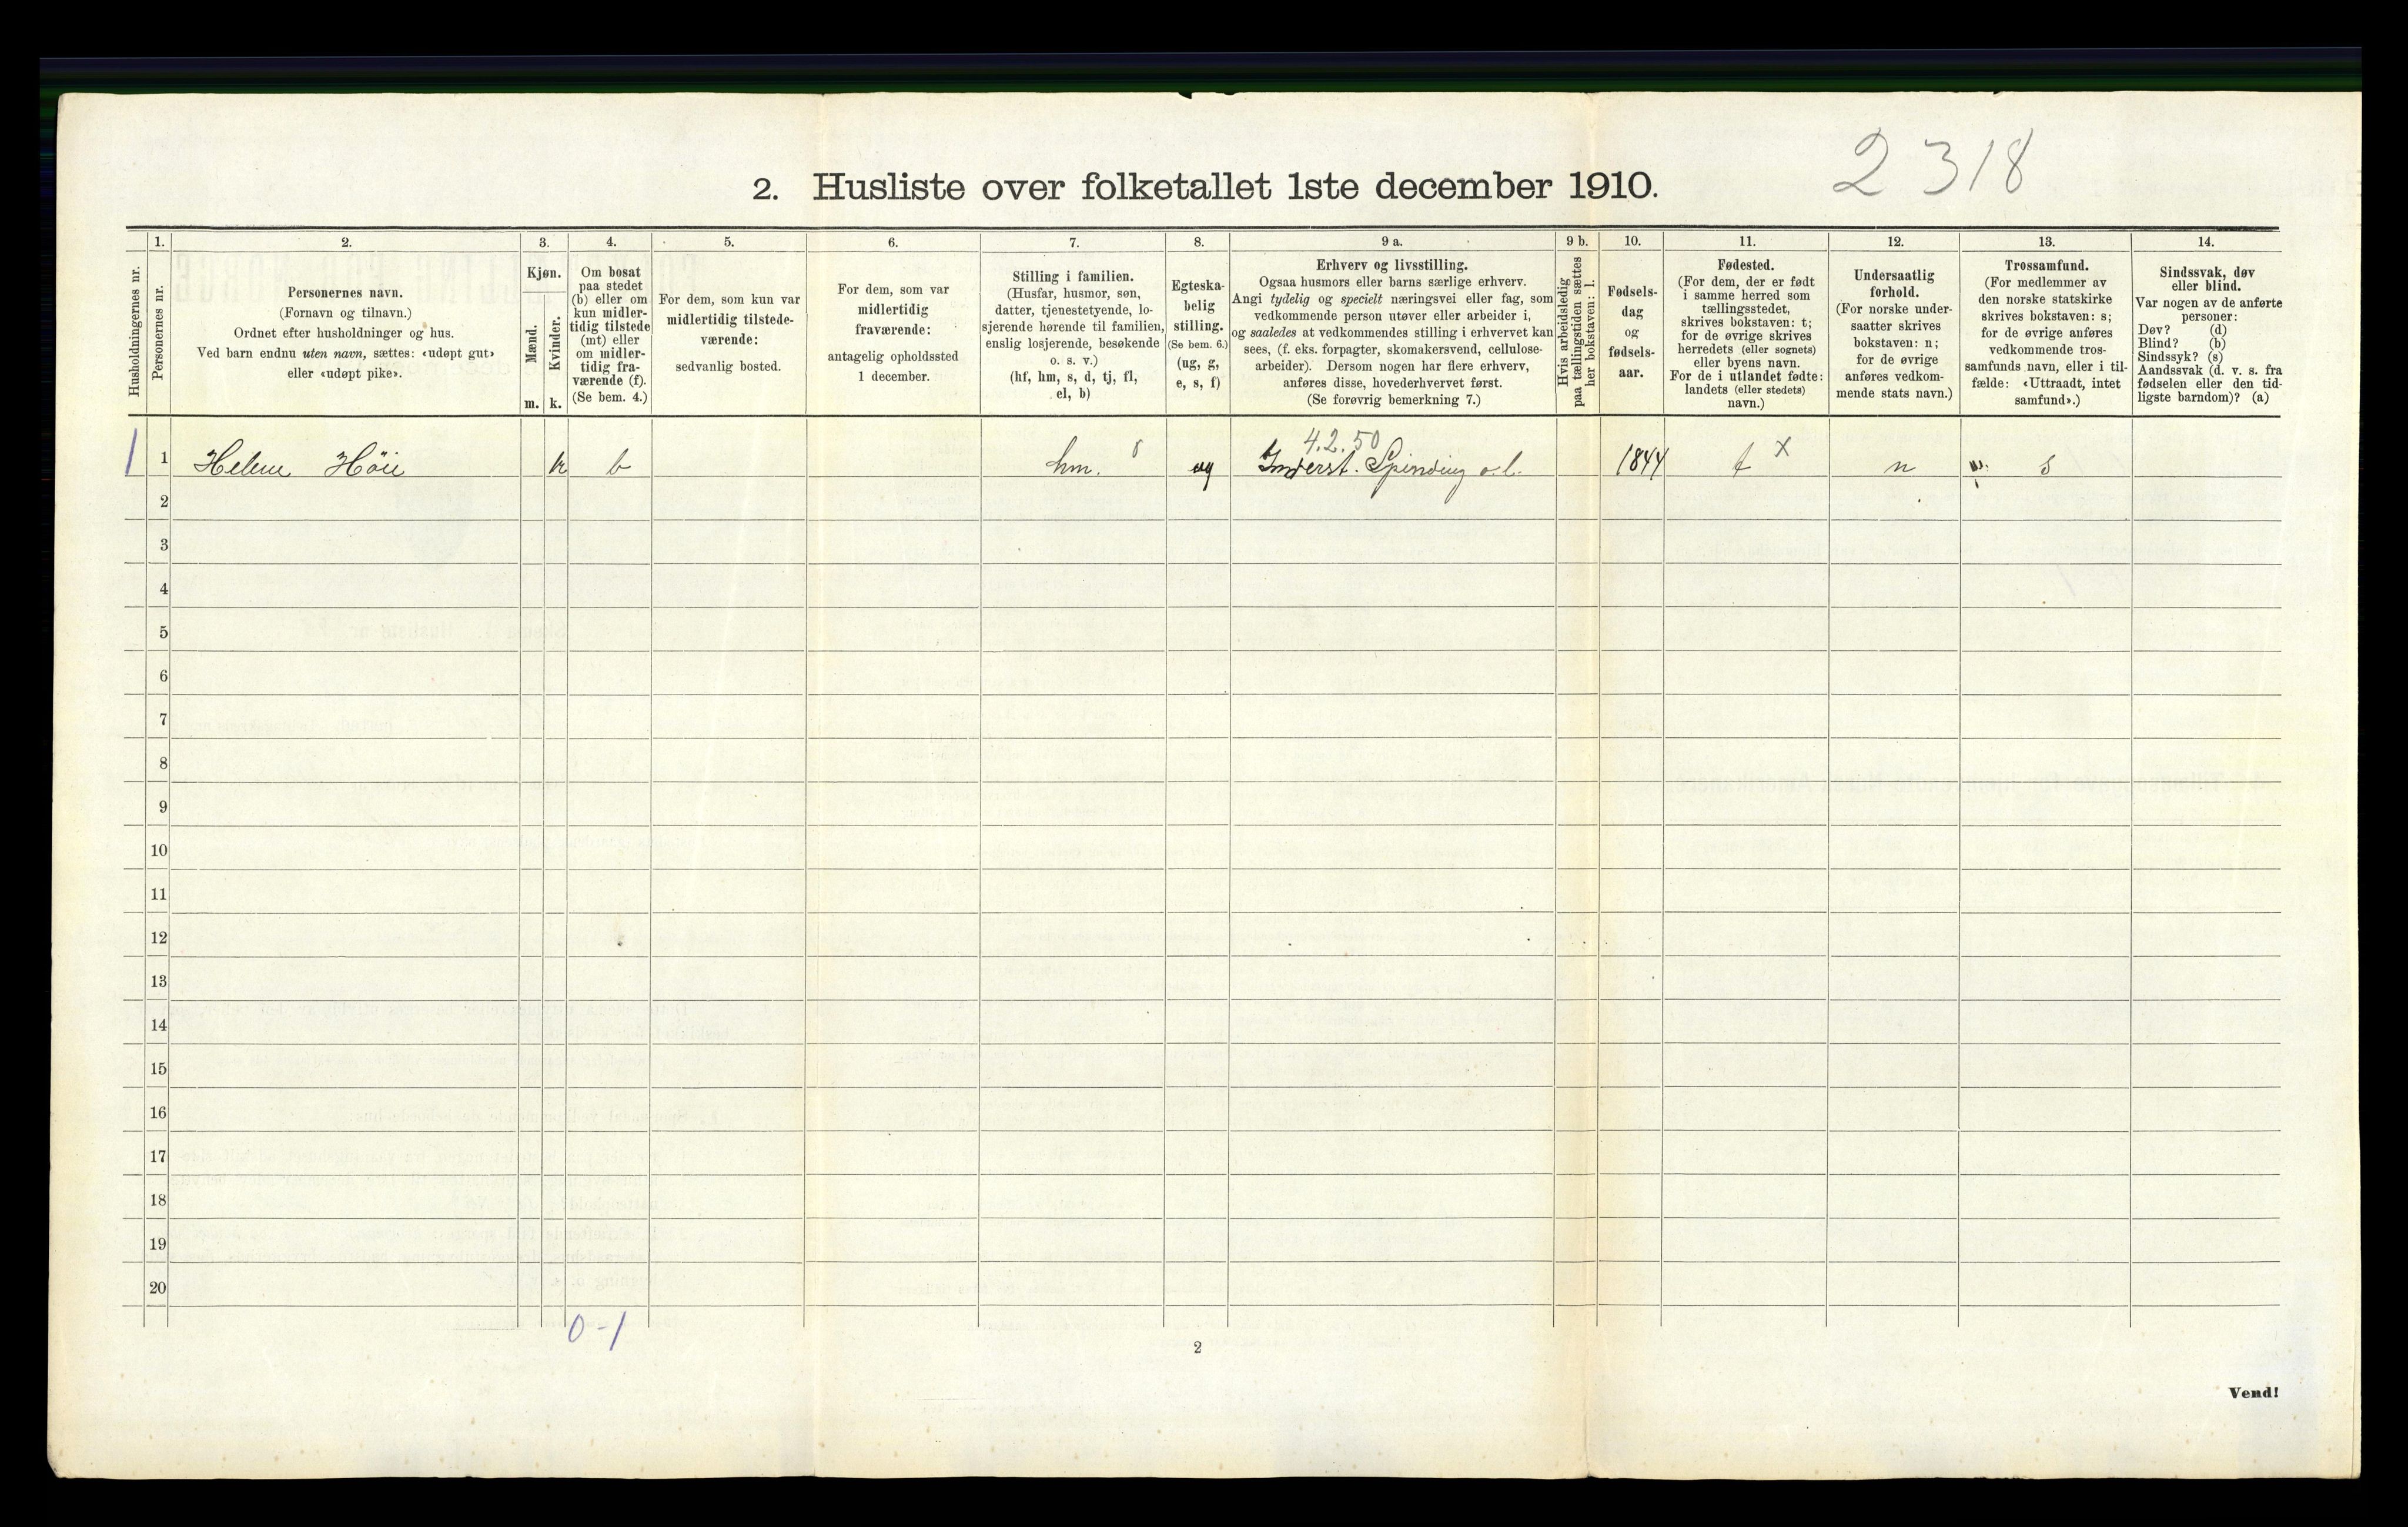 2 318
2. Husliste over folketallet 1ste december 1910.
Husholdningernes nr.
1.
Personernes nr.
2.
Personernes navn.
(Fornavn og tilnavn.)
Ordnet efter husholdninger og hus.
Ved barn endnu uten navn, sættes: «udøpt gut»
eller «udøpt pike».
3.
Kjøn.
Mænd.
Kvinder.
m.
k.
4.
Om bosat
paa stedet
(b) eller om
kun midler-
tidig tilstede
(mt) eller
om midler-
tidig fra-
værende (f).
(Se bem. 4.)
5.
For dem, som kun var
midlertidig tilstede-
værende:
sedvanlig bosted.
6.
For dem, som var
midlertidig
fraværende:
antagelig opholdssted
1 december.
7.
Stilling i familien.
(Husfar, husmor, søn,
datter, tjenestetyende, lo-
sjerende hørende til familien,
enslig losjerende, besøkende
o. s. v.)
(hf, hm, s, d, tj, fl,
el, b)
8.
Egteska-
belig
stilling.
(Se bem. 6.)
(ug, g,
e, s, f)
9 a.
Erhverv og livsstilling.
Ogsaa husmors eller barns særlige erhverv.
Angi tydelig og specielt næringsvei eller fag, som
vedkommende person utøver eller arbeider i,
og saaledes at vedkommendes stilling i erhvervet kan
sees, (f. eks. forpagter, skomakersvend, cellulose-
arbeider). Dersom nogen har flere erhverv,
anføres disse, hovederhvervet først.
(Se forøvrig bemerkning 7.)
9 b.
Hvis arbeidsledig
paa tællingstiden sættes
her bokstaven: l.
10.
Fødsels-
dag
og
fødsels-
aar.
11.
Fødested.
(For dem, der er født
i samme herred som
tællingsstedet,
skrives bokstaven: t;
for de øvrige skrives
herredets (eller sognets)
eller byens navn.
For de i utlandet fødte:
landets (eller stedets)
navn.)
12.
Undersaatlig
forhold.
(For norske under-
saatter skrives
bokstaven: n;
for de øvrige
anføres vedkom-
mende stats navn.)
13.
Trossamfund.
(For medlemmer av
den norske statskirke
skrives bokstaven: s;
for de øvrige anføres
vedkommende tros-
samfunds navn, eller i til-
fælde: «Uttraadt, intet
samfund».)
14.
Sindssvak, døv
eller blind.
Var nogen av de anførte
personer:
Døv? (d)
Blind? (b)
Sindssyk? (s)
Aandssvak (d. v. s. fra
fødselen eller den tid-
ligste barndom)? (a)
4.2.50
1 1 Helene Höie k b hm. ug Inderst. Spinding o.l. 1844 t x n s
2
3
4
5
6
7
8
9
10
11
12
13
14
15
16
17
18
19
20
0-1
2
Vend!